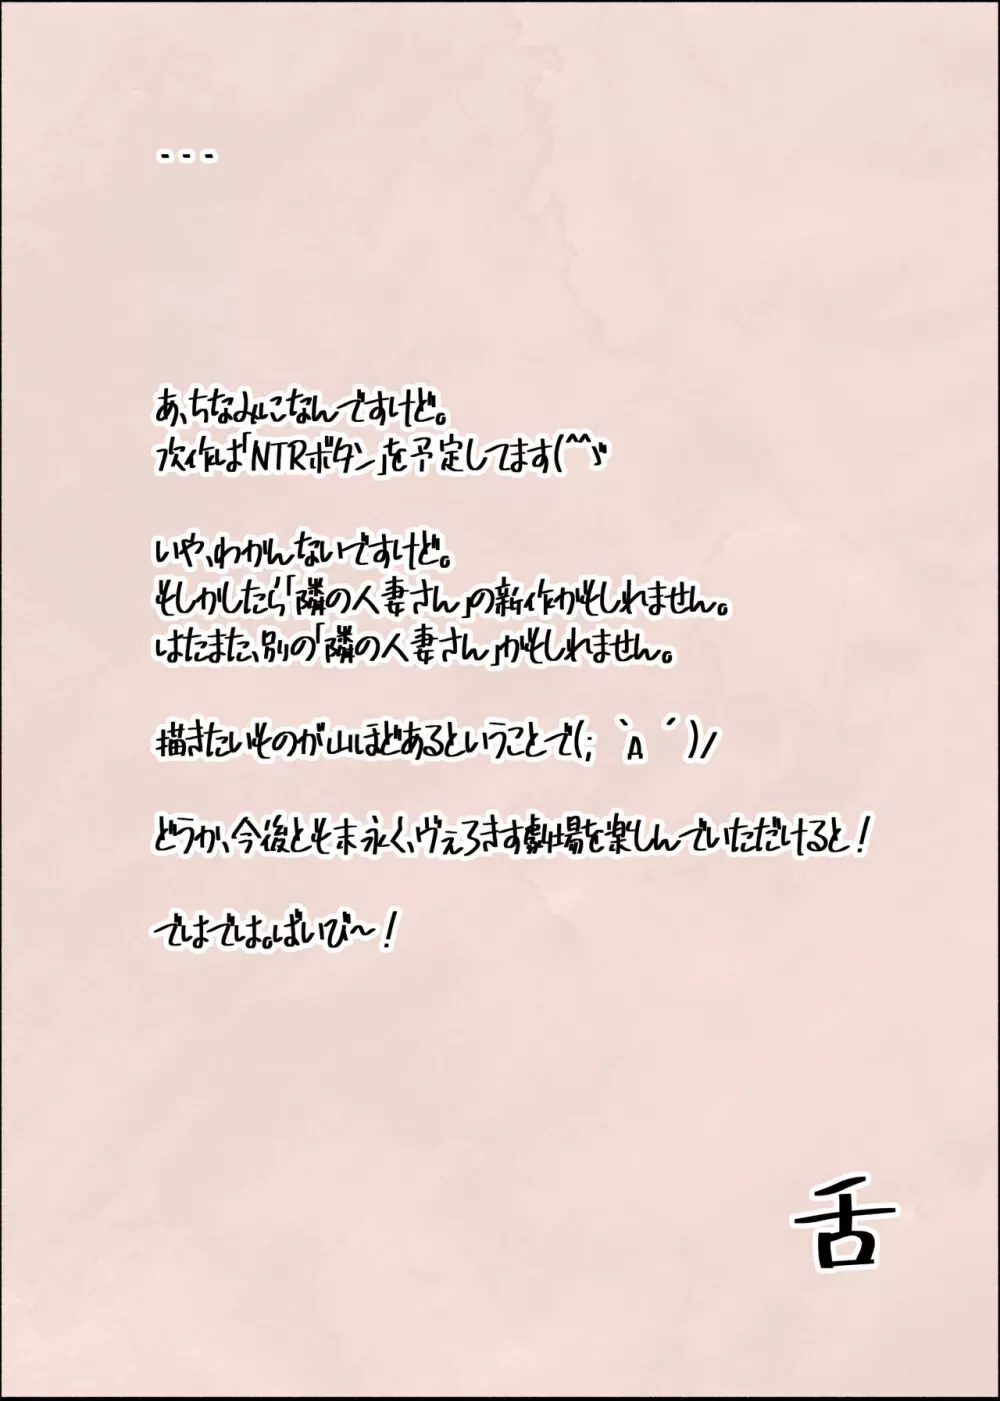 ---
あ、ちなみになんですけど。
次作は「NTRボタン」を予定してます(^^ゞ
いや、わかんないですけど。
もしかしたら「隣の人妻さん」の新作かもしれません。
はたまた、別の「隣の人妻さん」かもしれません。
描きたいものが山ほどあるということで(;｀A´)/
どうか、今後とも末永く、ヴぇろきす劇場を楽しんでいただけると！
ではでは。ばいび〜！
舌